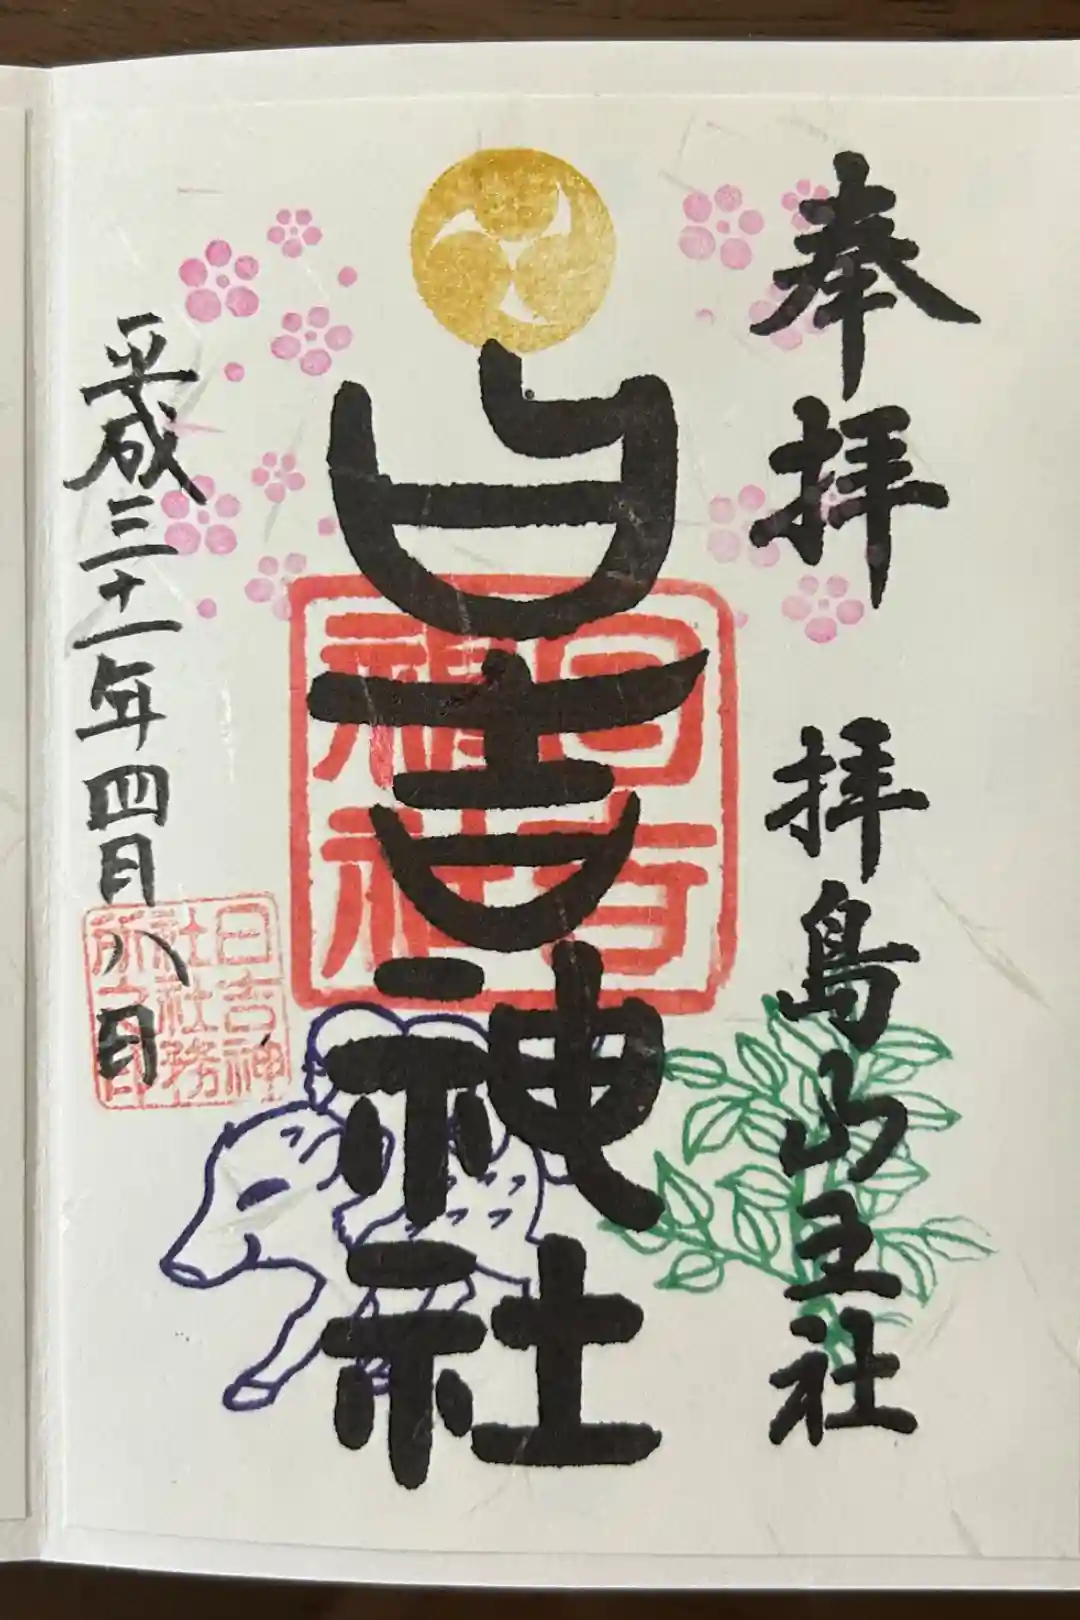 奉拝
拝島山王社
日吉神社
日吉
神社
平成三十一年四月八日
日吉神
社社務
所之印